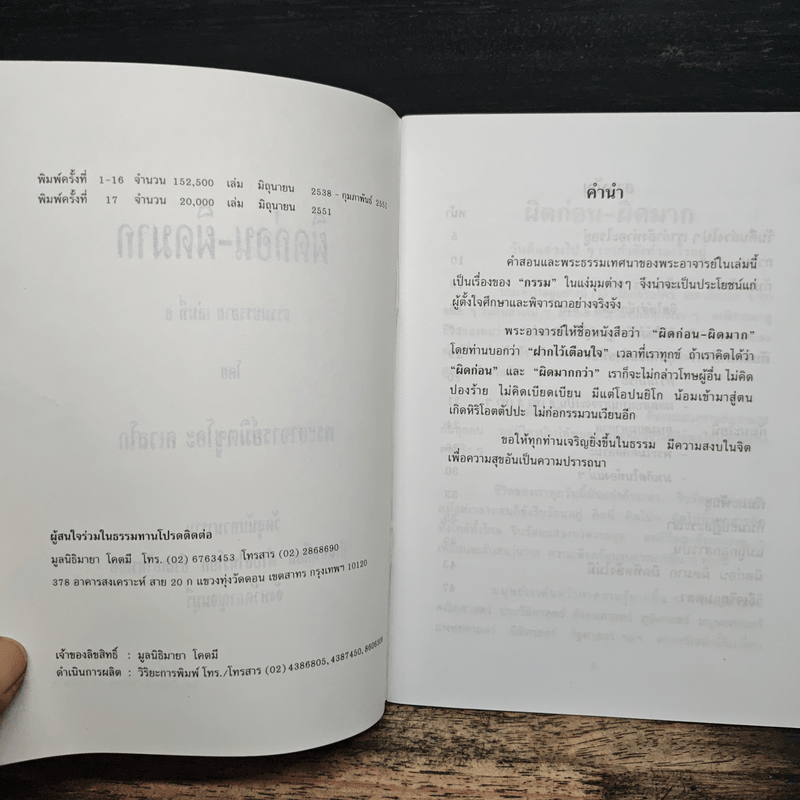 พิมพ์ครั้งที่ 1-16 จำนวน 152,500 เล่ม มิถุนายน 2538 - กุมภาพันธ์ 2551
พิมพ์ครั้งที่ 17 จำนวน 20,000 เล่ม มิถุนายน 2551
ผู้สนใจร่วมในธรรมทานโปรดติดต่อ
มูลนิธิมายา โคตมี โทร. (02) 6763453 โทรสาร (02) 2868690
378 อาคารสงเคราะห์ สาย 20 ก แขวงทุ่งวัดดอน เขตสาทร กรุงเทพฯ 10120
เจ้าของลิขสิทธิ์ : มูลนิธิมายา โคตมี
ดำเนินการผลิต : วิริยะการพิมพ์ โทร./โทรสาร (02) 4386805, 4387450, 8606308
คำนำ
คำสอนและพระธรรมเทศนาของพระอาจารย์ในเล่มนี้
เป็นเรื่องของ "กรรม" ในแง่มุมต่างๆ จึงน่าจะเป็นประโยชน์แก่
ผู้ตั้งใจศึกษาและพิจารณาอย่างจริงจัง
พระอาจารย์ให้ชื่อหนังสือว่า "ผิดก่อน-ผิดมาก"
โดยท่านบอกว่า "ฝากไว้เตือนใจ" เวลาที่เราทุกข์ ถ้าเราคิดได้ว่า
"ผิดก่อน" และ "ผิดมากกว่า" เราก็จะไม่กล่าวโทษผู้อื่น ไม่คิด
ปองร้าย ไม่คิดเบียดเบียน มีแต่โอปนยิโก น้อมเข้ามาสู่ตน
เกิดหิริโอตตัปปะ ไม่ก่อกรรมวนเวียนอีก
ขอให้ทุกท่านเจริญยิ่งขึ้นในธรรม มีความสงบในจิต
เพื่อความสุขอันเป็นความปรารถนา